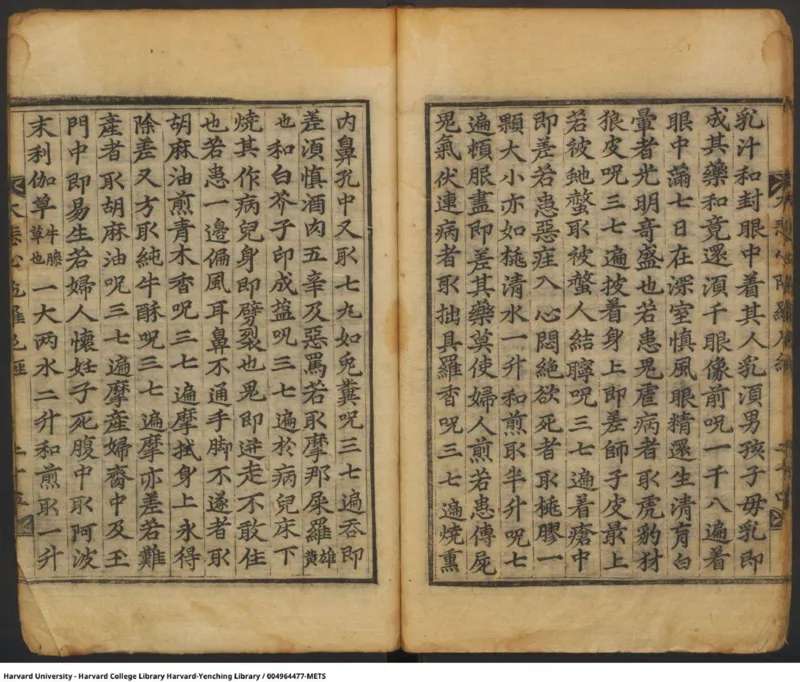 乳汁和封眼中着其人乳湏男孩子母乳即
成其藥和竟還湏千眼像前呪一千八遍着
眼中滿七日在深室慎風眼精還生清盲白
暈者光明奇盛也若患鬼瘧病者取虎豹犲
狼皮呪三七遍披着身上即差師子皮最上
若被虵螫取被螫人結聹呪三七遍着瘡中
即差若患惡疰入心悶絕欲死者取桃膠一
顆大小亦如桃清水一升和煎取半升呪七
遍頓服盡即差其藥莫使婦人煎若患傳屍
鬼氣伏連病者取拙具羅香呪三七遍燒熏
內鼻孔中又取七九如兔糞呪三七遍吞即
差湏慎酒肉五辛及惡罵若取摩那屎羅雄黃
也和白芥子印成益呪三七遍於病兒床下
燒其作病兒身即劈裂也鬼即迸走不敢住
也若患一邊偏風耳鼻不通手脚不遂者取
胡麻油煎青木香呪三七遍摩拭身上永得
除差又方取純牛酥呪三七遍摩亦差若難
產者取胡麻油呪三七遍摩產婦齋中及玉
門中即易生若婦人懷妊子死腹中取阿波
末利伽草牛膝草也一大两水二升和煎取一升
Harvard University - Harvard College Library Harvard-Yenching Library / 004964477-METS